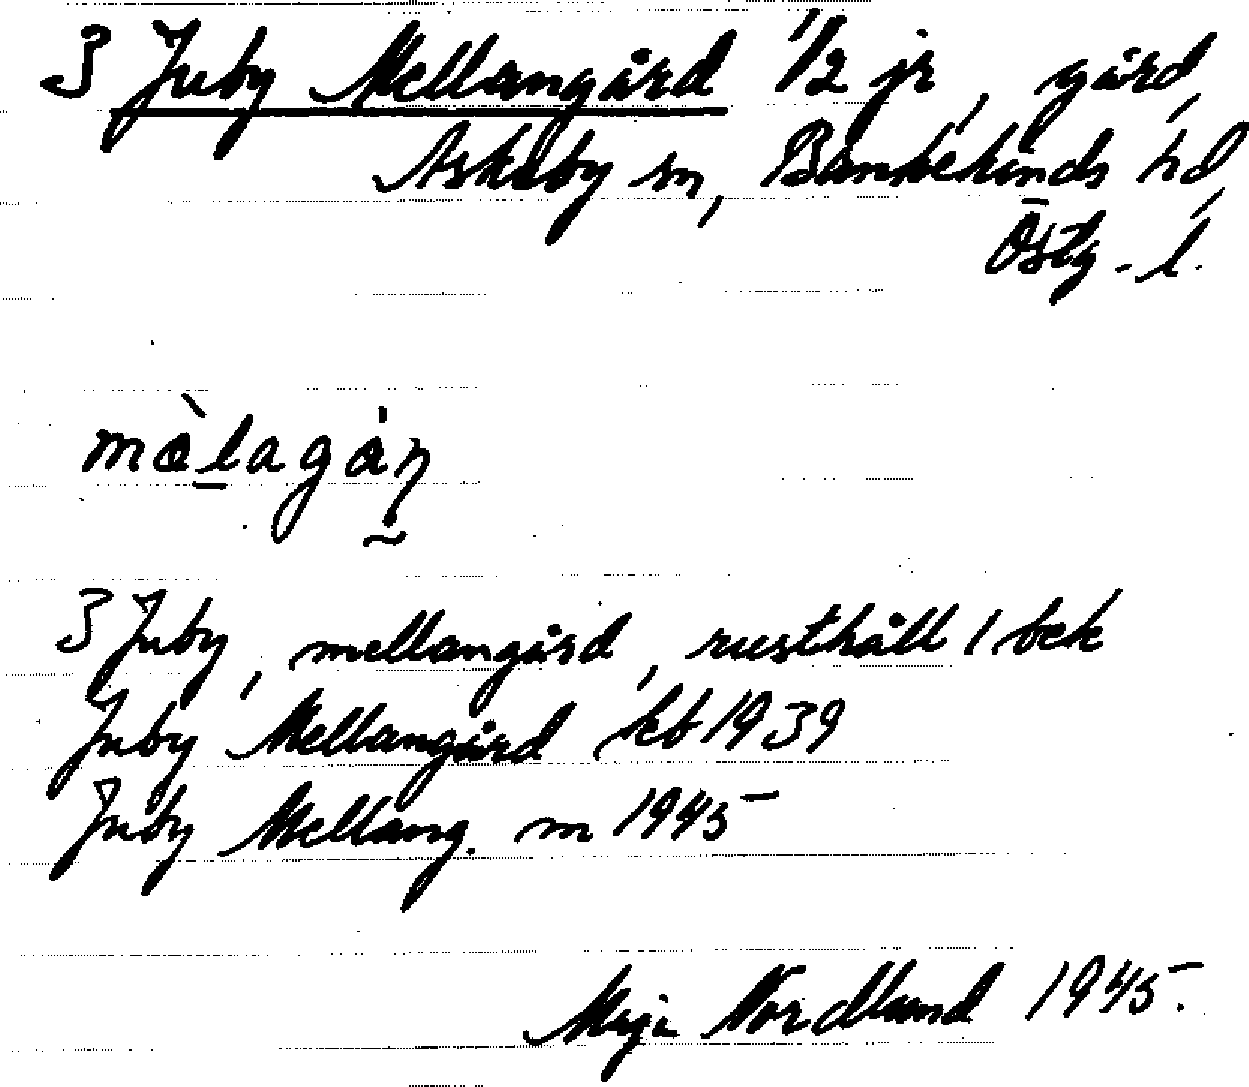 3 Juby Mellangård 1/2 jr, gård,
Askeby sn, Bankekinds hd,
Östg. l.
màlagán̥
3 Juby, mellangård, rusthåll / bek
Juby Mellangård kb 1939
Juby Mellang. m 1945
Maja Nordlund 1945.